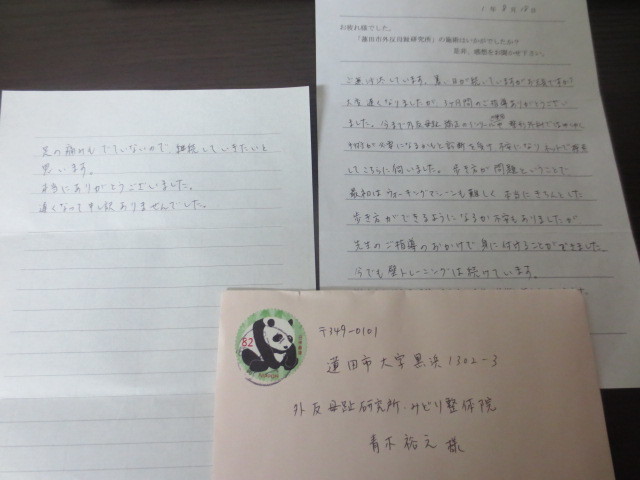 1年8月18日
お疲れ様でした。
「蓮田市外反母趾研究所」の施術はいかがでしたか?
是非、感想をお聞かせ下さい。
ご無沙汰しています。暑い日が続いていますがお元気ですか?
大変遅くなりましたが、3ヶ月間のご指導ありがとうござい
ました。今まで外反母趾
手術が必要になるかもと診断を受け、不安になり、ネットで検索
してこちらに伺いました。歩き方が問題ということで
最初はウォーキングマシーンも難しく、本当にきちんとした
歩き方ができるようになるか不安もありましたが、
先生のご指導のおかげで身に付けることができました。
今でも壁トレーニングは続けています。
足の痛みもでていないので継続していきたいと
思います。
本当にありがとうございました。
遅くなって申し訳ありませんでした。
82
〒349-0101
蓮田市大字黒浜1302-3
外反母趾研究所・みどり整体院
青木裕元様